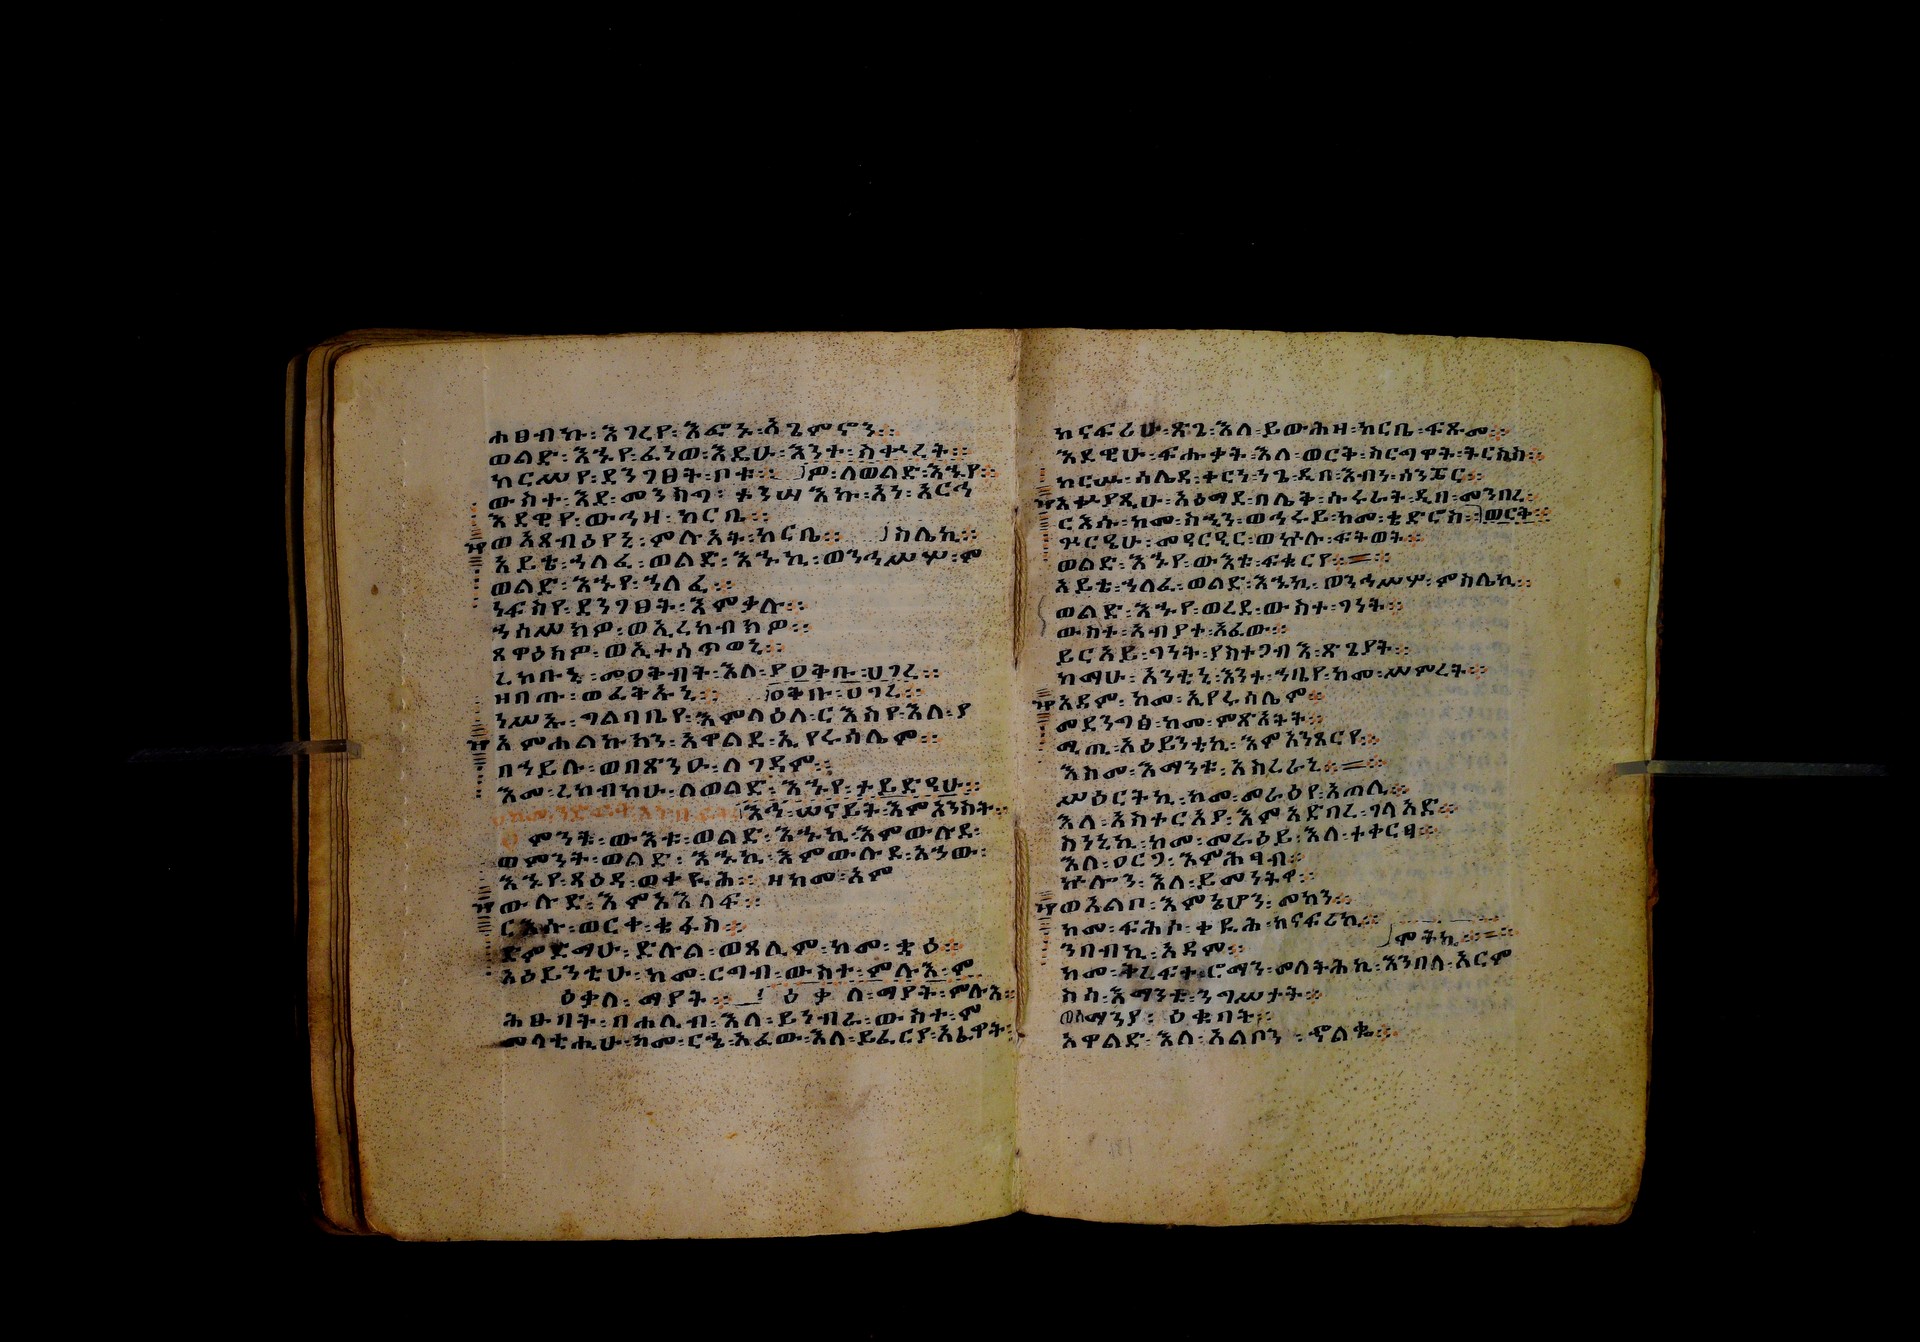 ሐፀብኩ፡ እገረየ፡ እፎኑ፡ አጌምኖን።
ወልድ፡ እኁየ፡ ፈነወ፡ እዴሁ፡ እንተ፡ ስቍረት።
ከርሥየ፡ ደንገፀት፡ ቦቱ።
ውስተ፡ እደ፡
እደዊየ፡ ውኅዘ፡ ከርቤ።
ወአጻብዕየኒ፡ ምሉአት፡ ከርቤ።
አይቴ፡ ኀለፈ፡ ወልድ፡ እኁኪ፡ ወንኅሥሦ፡ ም
ወልድ፡ እኁየ፡ ኀለፈ።
ነፍስየ፡ ደንገፀት፡ እምቃሉ።
ኀሠሥክዎ፡ ወኢረከብክዎ።
ጸዋዕክዎ፡ ወኢተሰጥወኒ።
ረከቡኒ፡ መዐቅብት፡ እለ፡ የዐቅቡ፡ ሀገረ።
ዘበጡ፡ ወፈትኡኒ። ዐቅቡ፡ ሀገረ።
ነሥኡ፡ ግልባቤየ፡ እምላዕለ፡ ርእስየ፡ እለ፡ የ
አምሐልኩክን፡ አዋልደ፡ ኢየሩሳሌም።
በኀይሉ፡ ወበጽንዑ፡ ለገዳም።
እመ፡ ረከብክሁ፡ ለወልድ፡ እኁየ፡ ታይድዓሁ።
እኅ፡ ሠናይት፡ እምአንስት።
ምንት፡ ውእቱ፡ ወልድ፡ እኁኪ፡ እምውሉደ፡
ወምንት፡ ወልድ፡ እኁኪ፡ እምውሉደ፡ አኀው፡
እኁየ፡ ጸዕዳ፡ ወቀይሕ። ዘከመ፡ አም
ውሉድ፡ እምአእላፍ።
ርእሱ፡ ወርቀ፡ ቄፋስ።
ድምድማሁ፡ ድሉል፡ ወጸሊም፡ ከመ፡ ቋዕ።
አዕይንቲሁ፡ ከመ፡ ርግብ፡ ውስተ፡ ምሉእ፡ ም
ዕቃለ፡ ማያት። ዕቃለ፡ ማያት፡ ምሉእ።
ሕፁባት፡ በሐሊብ፡ እለ፡ ይነብራ፡ ውስተ፡ ም
መላትሒሁ፡ ከመ፡ ርኄ፡ አፈው፡ እለ፡ ይፈርያ፡ አፈዋት፡
ከናፍሪሁ፡ ጽጌ፡ እለ፡ ይውሕዘ፡ ከርቤ፡ ፍጹመ።
እደዊሁ፡ ፍሑቃት፡ እለ፡ ወርቅ፡
ከርሡ፡ ሰሌዳ፡ ቀርነ፡ ነጌ፡ ዲበ፡ እብነ፡ ሰንፔር።
አቍያጺሁ፡ አዕማደ፡ በሌቅ፡ ሱሩራት፡ ዲበ፡ መንበረ፡
ርእሱ፡ ከመ፡ ስኂን፡ ወኅሩይ፡ ከመ፡ ቄድሮስ። ወርቅ።
ጕርዔሁ፡ መዓርዒር፡ ወኵሉ፡ ፍትወት።
ወልድ፡ እኁየ፡ ውእቱ፡ ፍቁርየ።
አይቴ፡ ኀለፈ፡ ወልድ፡ እኁኪ፡ ወንኅሥሦ፡ ምስሌኪ።
ወልድ፡ እኁየ፡ ወረደ፡ ውስተ፡ ገነት።
ውስተ፡ አብያተ፡ አፈው።
ይርአይ፡ ገነት፡ ያስተጋብእ፡ ጽጌያተ።
ከማሁ፡ አንቲኒ፡ እንተ፡ ኀቤየ፡ ከመ፡ ሥምረት።
አዳም፡ ከመ፡ ኢየሩሳሌም።
መደንግፅ፡ ከመ፡ ምጽአት።
ሚጢ፡ አዕይንቲኪ፡ እምአንጻርየ።
እስመ፡ እማንቱ፡ አክረራኒ።
ሥዕርትኪ፡ ከመ፡ መራዕየ፡ አጣሊ።
እለ፡ አስተርአያ፡ እምአድበረ፡ ገላአድ።
ስነኒኪ፡ ከመ፡ መራዕይ፡ እለ፡ ተቀርፃ።
እለ፡ ዐርጋ፡ እምሕፃብ።
ኵሎን፡ እለ፡ ይመንትዋ።
ወአልቦ፡ እምኔሆን፡ መካን።
ከመ፡ ፍሕሶ፡ ቀይሕ፡ ከናፍሪኪ።
ነባብኪ፡ አዳም።
ከመ፡ ቅረፍተ፡ ሮማን፡ መላትሕኪ፡ እንበለ፡ አርም
ስሳ፡ እማንቱ፡ ንግሥታት።
ወሰማንያ፡ ዕቁባት።
አዋልድ፡ እለ፡ አልቦን፡ ኍልቈ።